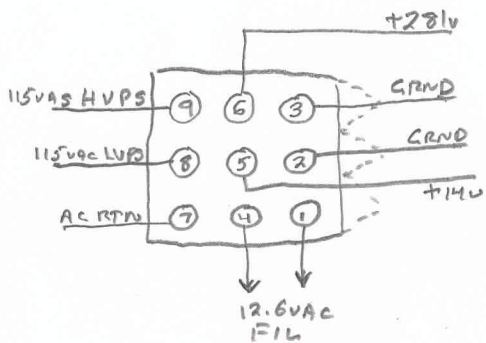 +281v
115VAS HVPS
9
6
3
GRND
GRND
115VAC LVPS
8
5
2
+14v
AC RTN
7
4
1
12.6VAC
FIL